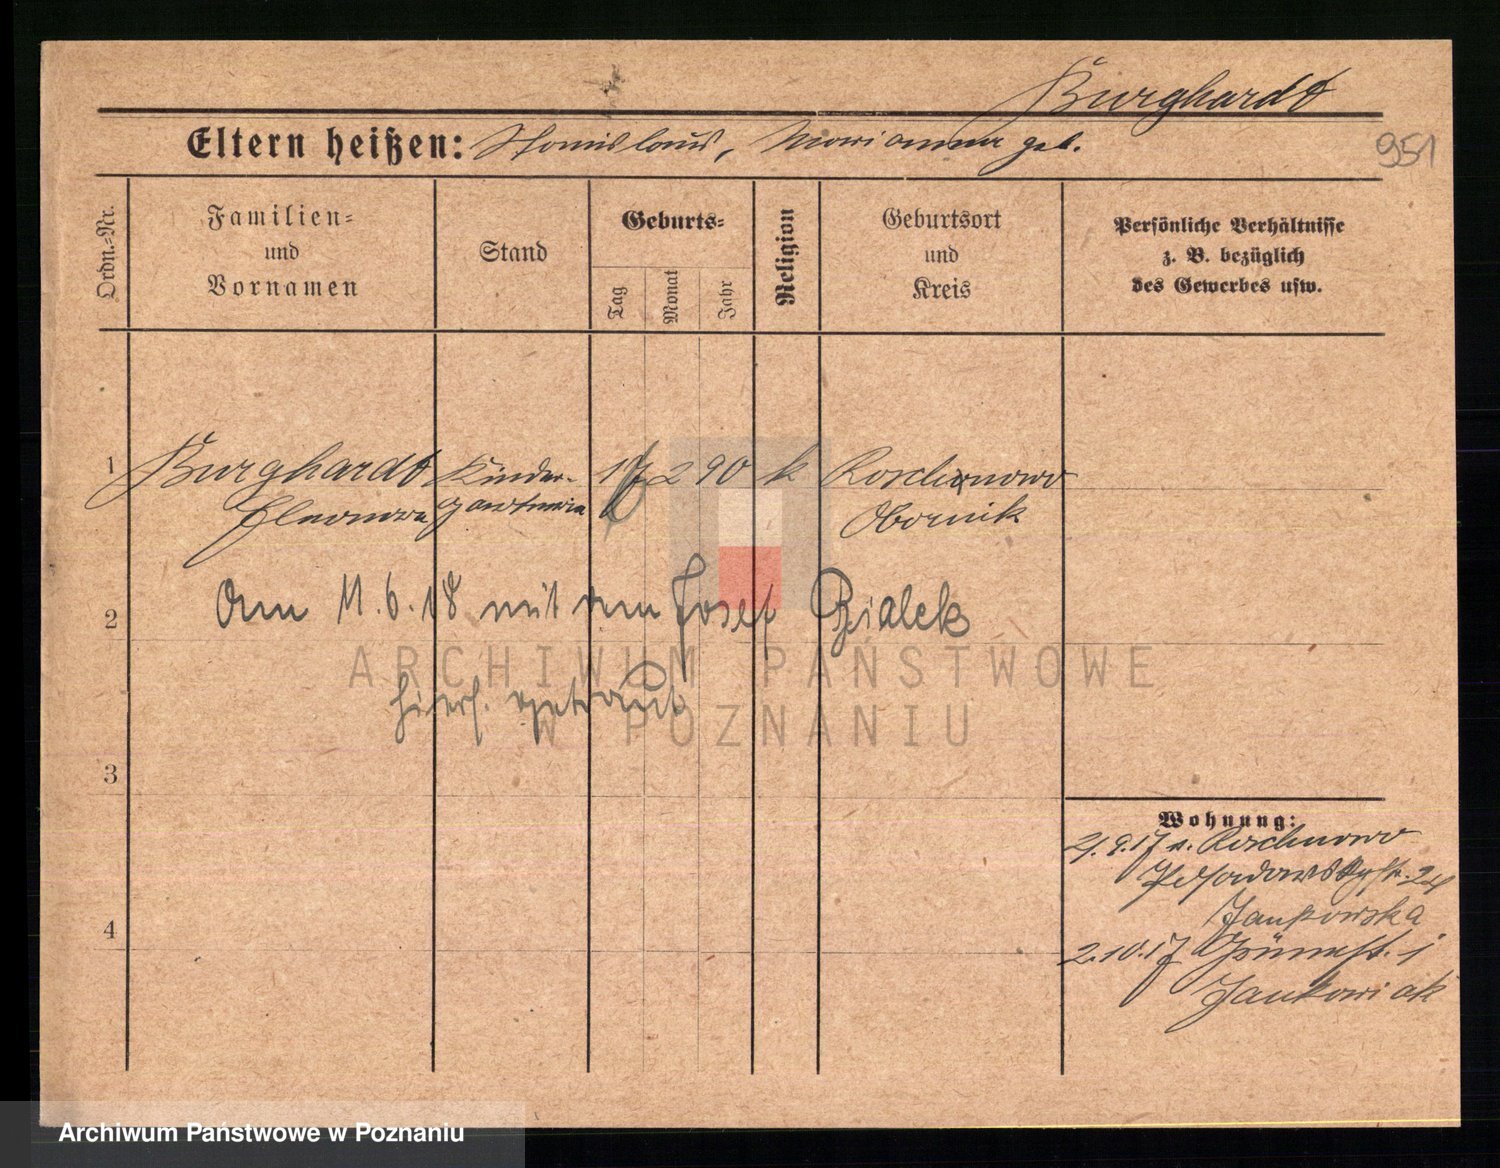 Burghardt
Eltern heißen: Stanislaus, Marianna geb.
951
Ordn.=Nr.
Familien=
und
Vornamen
Stand
Geburts=
Tag
Monat
Jahr
Religion
Geburtsort
und
Kreis
Persönliche Verhältnisse
z. B. bezüglich
des Gewerbes usw.
1 Burghardt Kinder- 17 2 90 k Roschnowo
Eleonora gärtnerin Obornik
2 Am 11.6.18 mit dem Josef Bialek
hiers. getraut
3
Wohnung:
21.9.17 v. Roschnowo
24
Jankowska
4
2.10.17 1
Jankowiak
ARCHIWUM PAŃSTWOWE
W POZNANIU
Archiwum Państwowe w Poznaniu